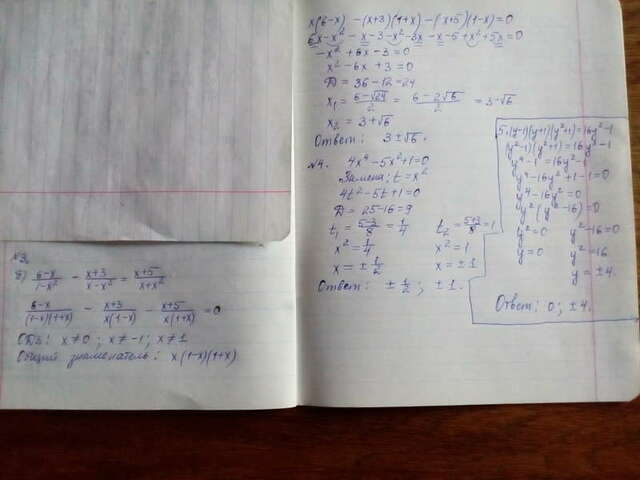 №3
б) (6-x)/(1-x²) - (x+3)/(x-x²) = (x+5)/(x+x²)
(6-x)/((1-x)(1+x)) - (x+3)/(x(1-x)) - (x+5)/(x(1+x)) = 0
ОДЗ: x≠0; x≠-1; x≠1
Общий знаменатель: x(1-x)(1+x)
x(6-x) - (x+3)(1+x) - (x+5)(1-x)=0
6x-x² - x-3-x²-3x -x-5+x²+5x=0
-x² + 6x -3=0
x² -6x +3=0
D = 36-12=24
x₁ = (6-√24)/2 = (6-2√6)/2 = 3-√6
x₂ = 3+√6
Ответ: 3±√6.
№4. 4x⁴-5x²+1=0
Замена: t=x²
4t²-5t+1=0
D=25-16=9
t₁ = (5-3)/8 = 1/4 t₂ = (5+3)/8 = 1
x² = 1/4 x²=1
x = ± 1/2 x=±1
Ответ: ± 1/2; ±1.
5. (y-1)(y+1)(y²+1)=16y²-1
(y²-1)(y²+1)=16y²-1
y⁴-1=16y²-1
y⁴-16y²+1-1=0
y⁴-16y²=0
y²(y²-16)=0
y²=0 y²-16=0
y=0 y²=16
y=±4.
Ответ: 0; ±4.